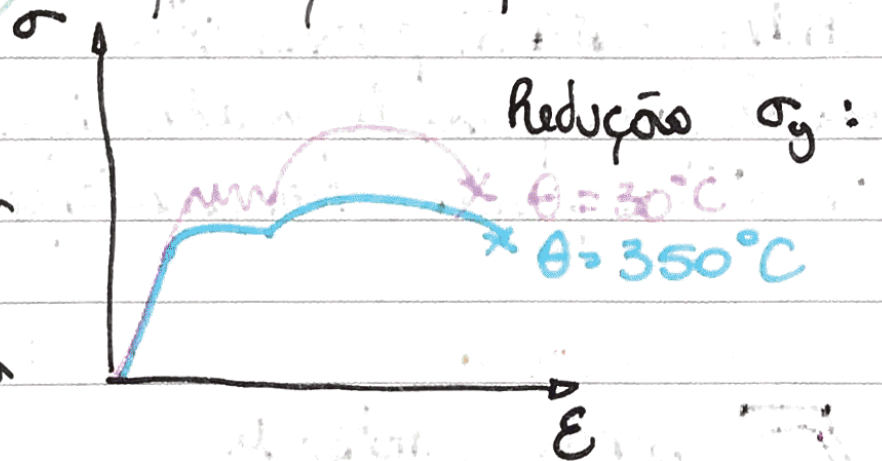 σ
Redução σy:
θ = 30°C
θ = 350°C
ε